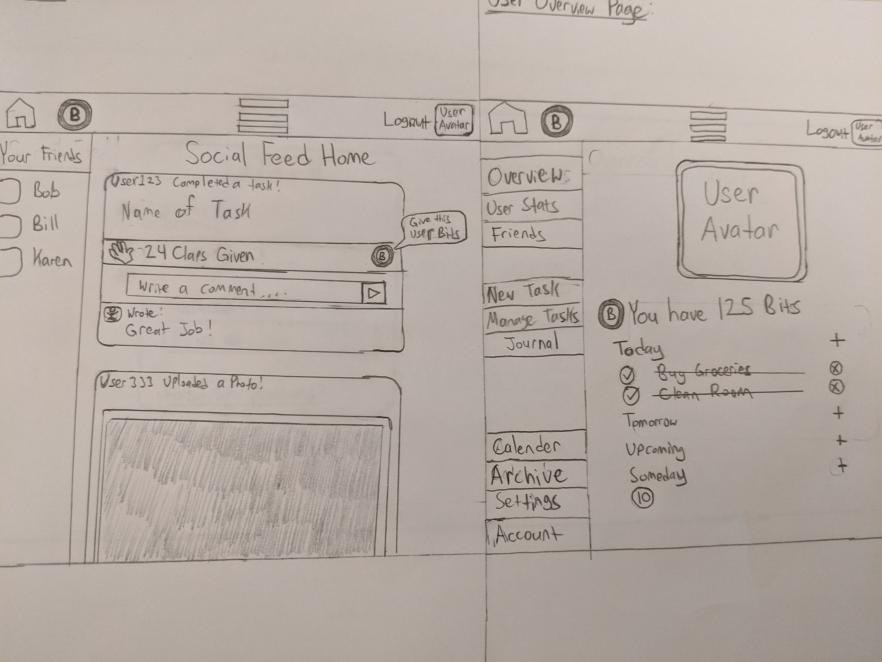 User Overview Page:
B
Logout
User
Avatar
Your Friends
Bob
Bill
Karen
Social Feed Home
User123 Completed a task!
Name of Task
24 Claps Given
B
Give this
user Bits
Write a comment....
Wrote:
Great Job!
User333 Uploaded a Photo!
B
Logout
User
Avatar
Overview:
User Stats
Friends
New Task
Manage Tasks
Journal
Calender
Archive
Settings
Account
User
Avatar
B You have 125 Bits
Today +
Buy Groceries
Clean Room
Tomorrow +
Upcoming +
Someday +
10